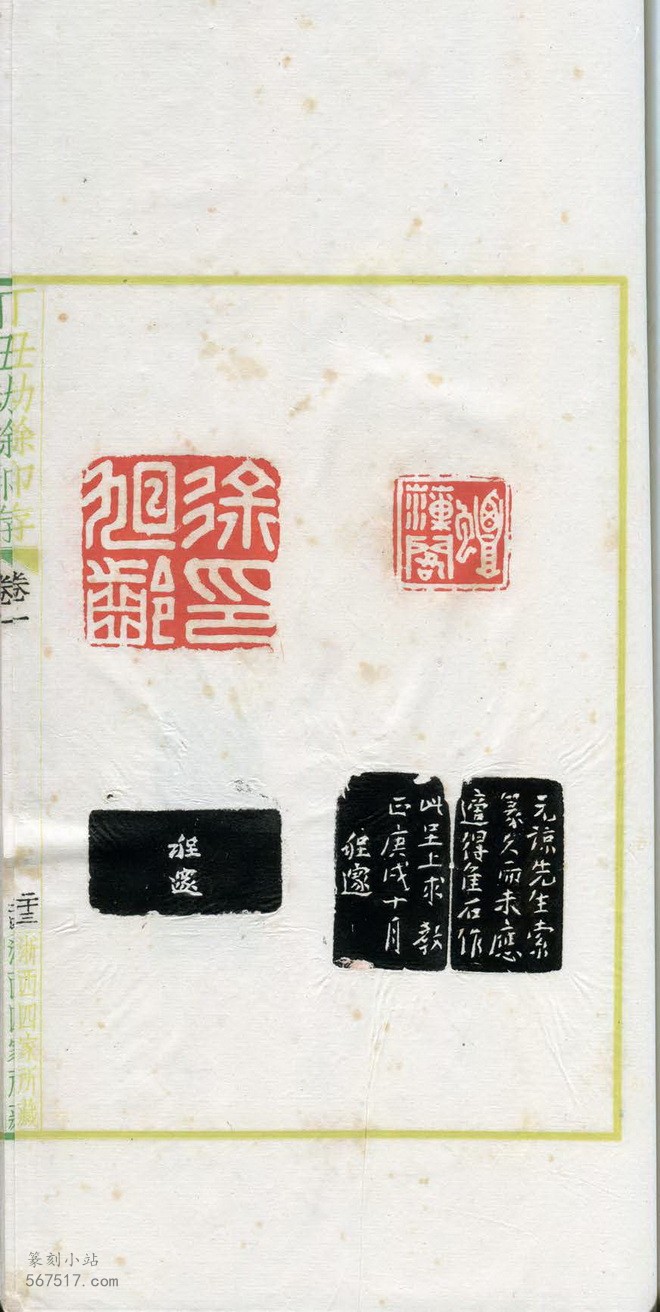 蟫藻閣
徐印旭齡
元諒先生索
篆久而未應
適得佳石作
此呈上求 教
正庚戌十月
程邃
程邃
丁丑劫餘印存
卷一
二十三
浙西四家所藏
篆刻小站
567517.com